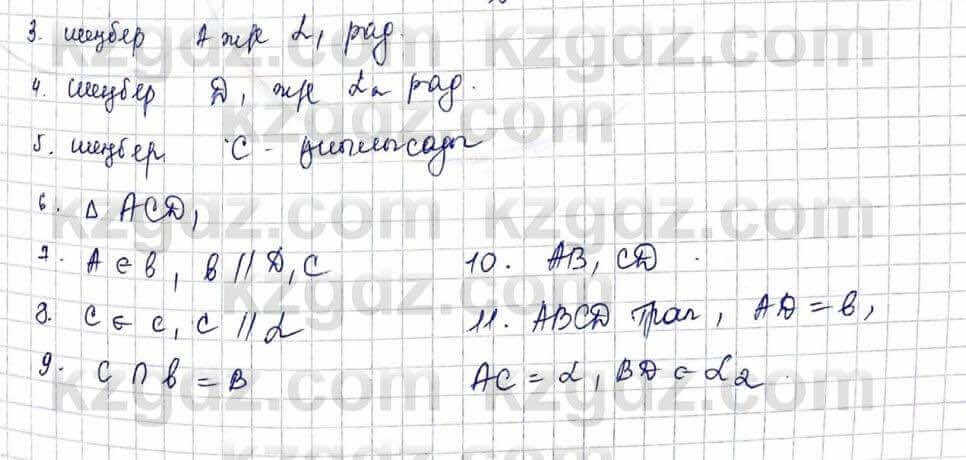 3. шеңбер A же d₁ рад.
4. шеңбер D, же d₂ рад.
5. шеңбер C - қиылысады
6. Δ ACD,
7. A ∈ в, в // D, C
8. C ∈ c, C // d
9. C ∩ в = B
10. AB, CD.
11. ABCD трап, AD = в,
AC = d, BD = d₂.
kzgdz.com